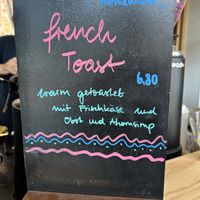 french
Toast
6,80
warm getoastet
mit Frischkäse und
Obst und Ahornsirup